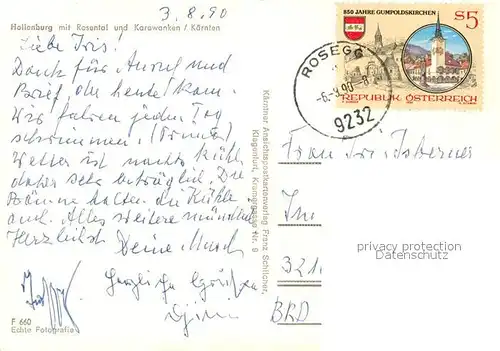 3.8.90
Hollenburg mit Rosental und Karawanken / Kärnten
Liebe Iris!
Dank für Anruf und
Brief, der heute kam.
Wir fahren jeden Tag
schwimmen.
Wetter ist nachts kühl
daher sehr erträglich. Die
Bäume halten die Kühle
auch. Alles weitere mündlich
Herzlichst Deine
Herzliche Grüße
F 660
Echte Fotografie
Kärntner Ansichtspostkartenverlag Franz Schilcher,
Klagenfurt, Kramergasse Nr. 9
850 JAHRE GUMPOLDSKIRCHEN
S5
REPUBLIK ÖSTERREICH
ROSEGG
9232
Frau Iris
In
321
BRD
privacy protection
watermark